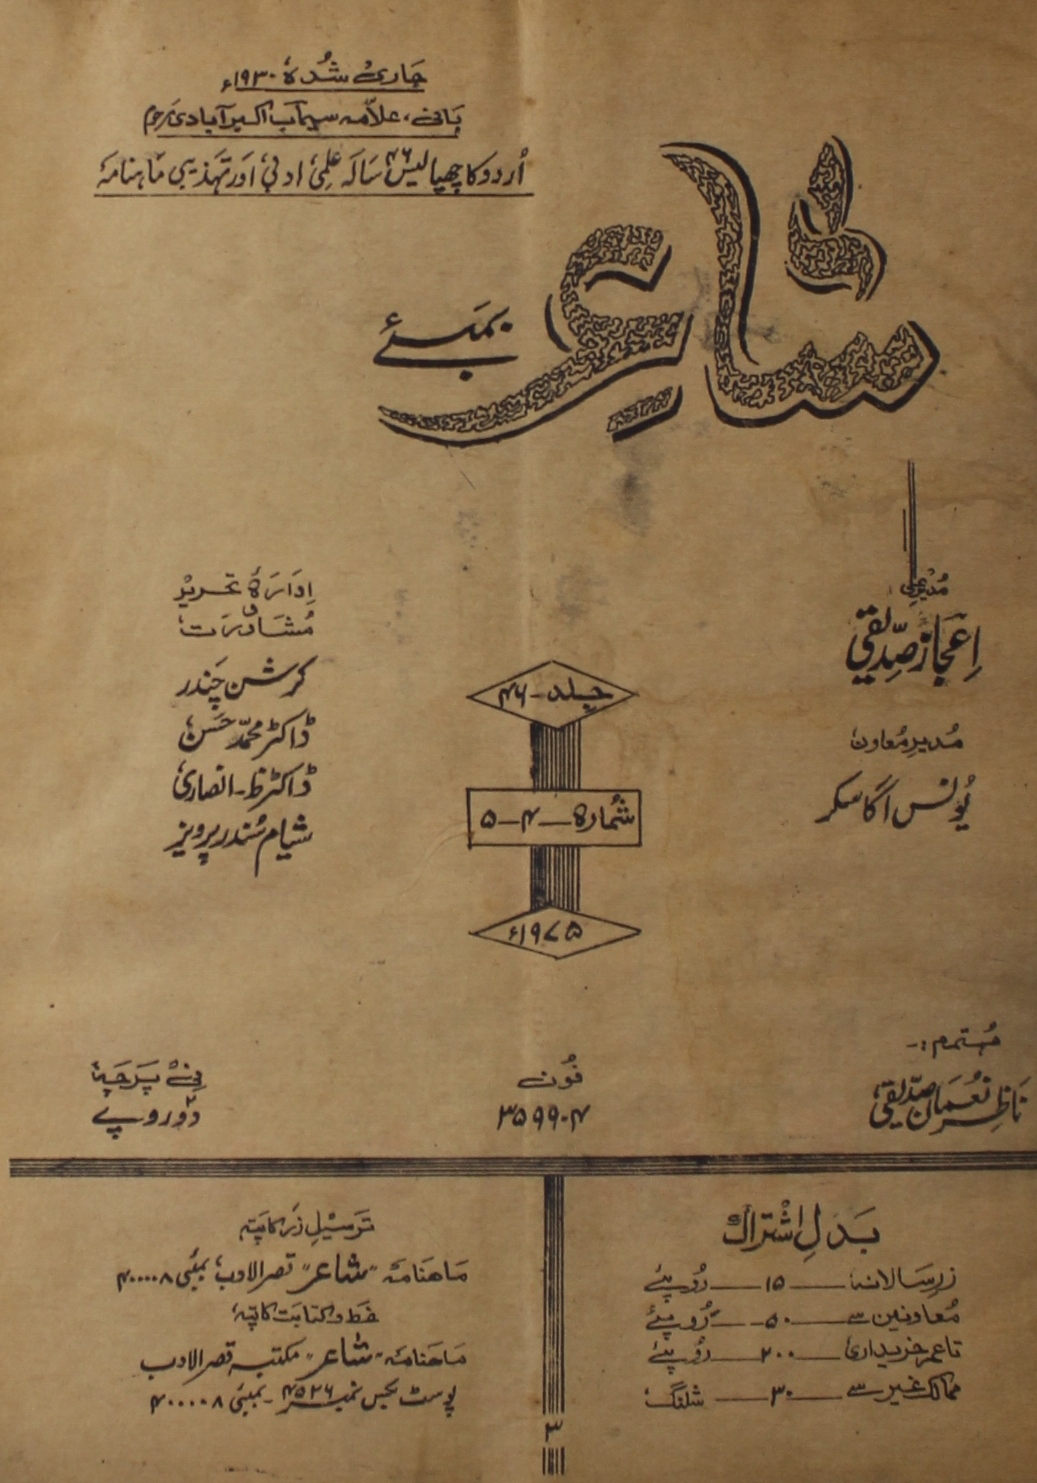 جاری شدہ ۱۹۳۰ء
بانی، علامہ سیماب اکبر آبادی مرحوم
اُردو کا چھیالیس ۴۶ سالہ علمی ادبی اور تہذیبی ماہنامہ
شاعر
بمبئی
مُدیرِ اعلیٰ
اعجاز صدّیقی
مُدیرِ معاون
یُونس اگاسکر
جلد - ۴۶
شُمارہ - ۴ - ۵
۱۹۷۵ء
اِدارۂ تحریر
و
مُشاورت
کرشن چندر
ڈاکٹر محمّد حسن
ڈاکٹر ظ - انصاری
شیام سُندر پرویز
مُہتمم :-
ناظر نعمان صدّیقی
فُون
۳۵۹۹۰۴
فی پرچہ
۲
دو روپے
بدلِ اشتراک
زرِ سالانہ — ۱۵ — روپیے
مُعاونین سے — ۵۰ — روپیے
تا عمر خریداری — ۲۰۰ — روپیے
ممالک غیر سے — ۳۰ — شلنگ
ترسیلِ زر کا پتہ
ماہنامہ "شاعر" قصر الادب، بمبئی ۴۰۰۰۰۸
خط و کتابت کا پتہ
ماہنامہ "شاعر" مکتبہ قصر الادب
پوسٹ بکس نمبر ۴۵۲۶ - بمبئی ۴۰۰۰۰۸
۳